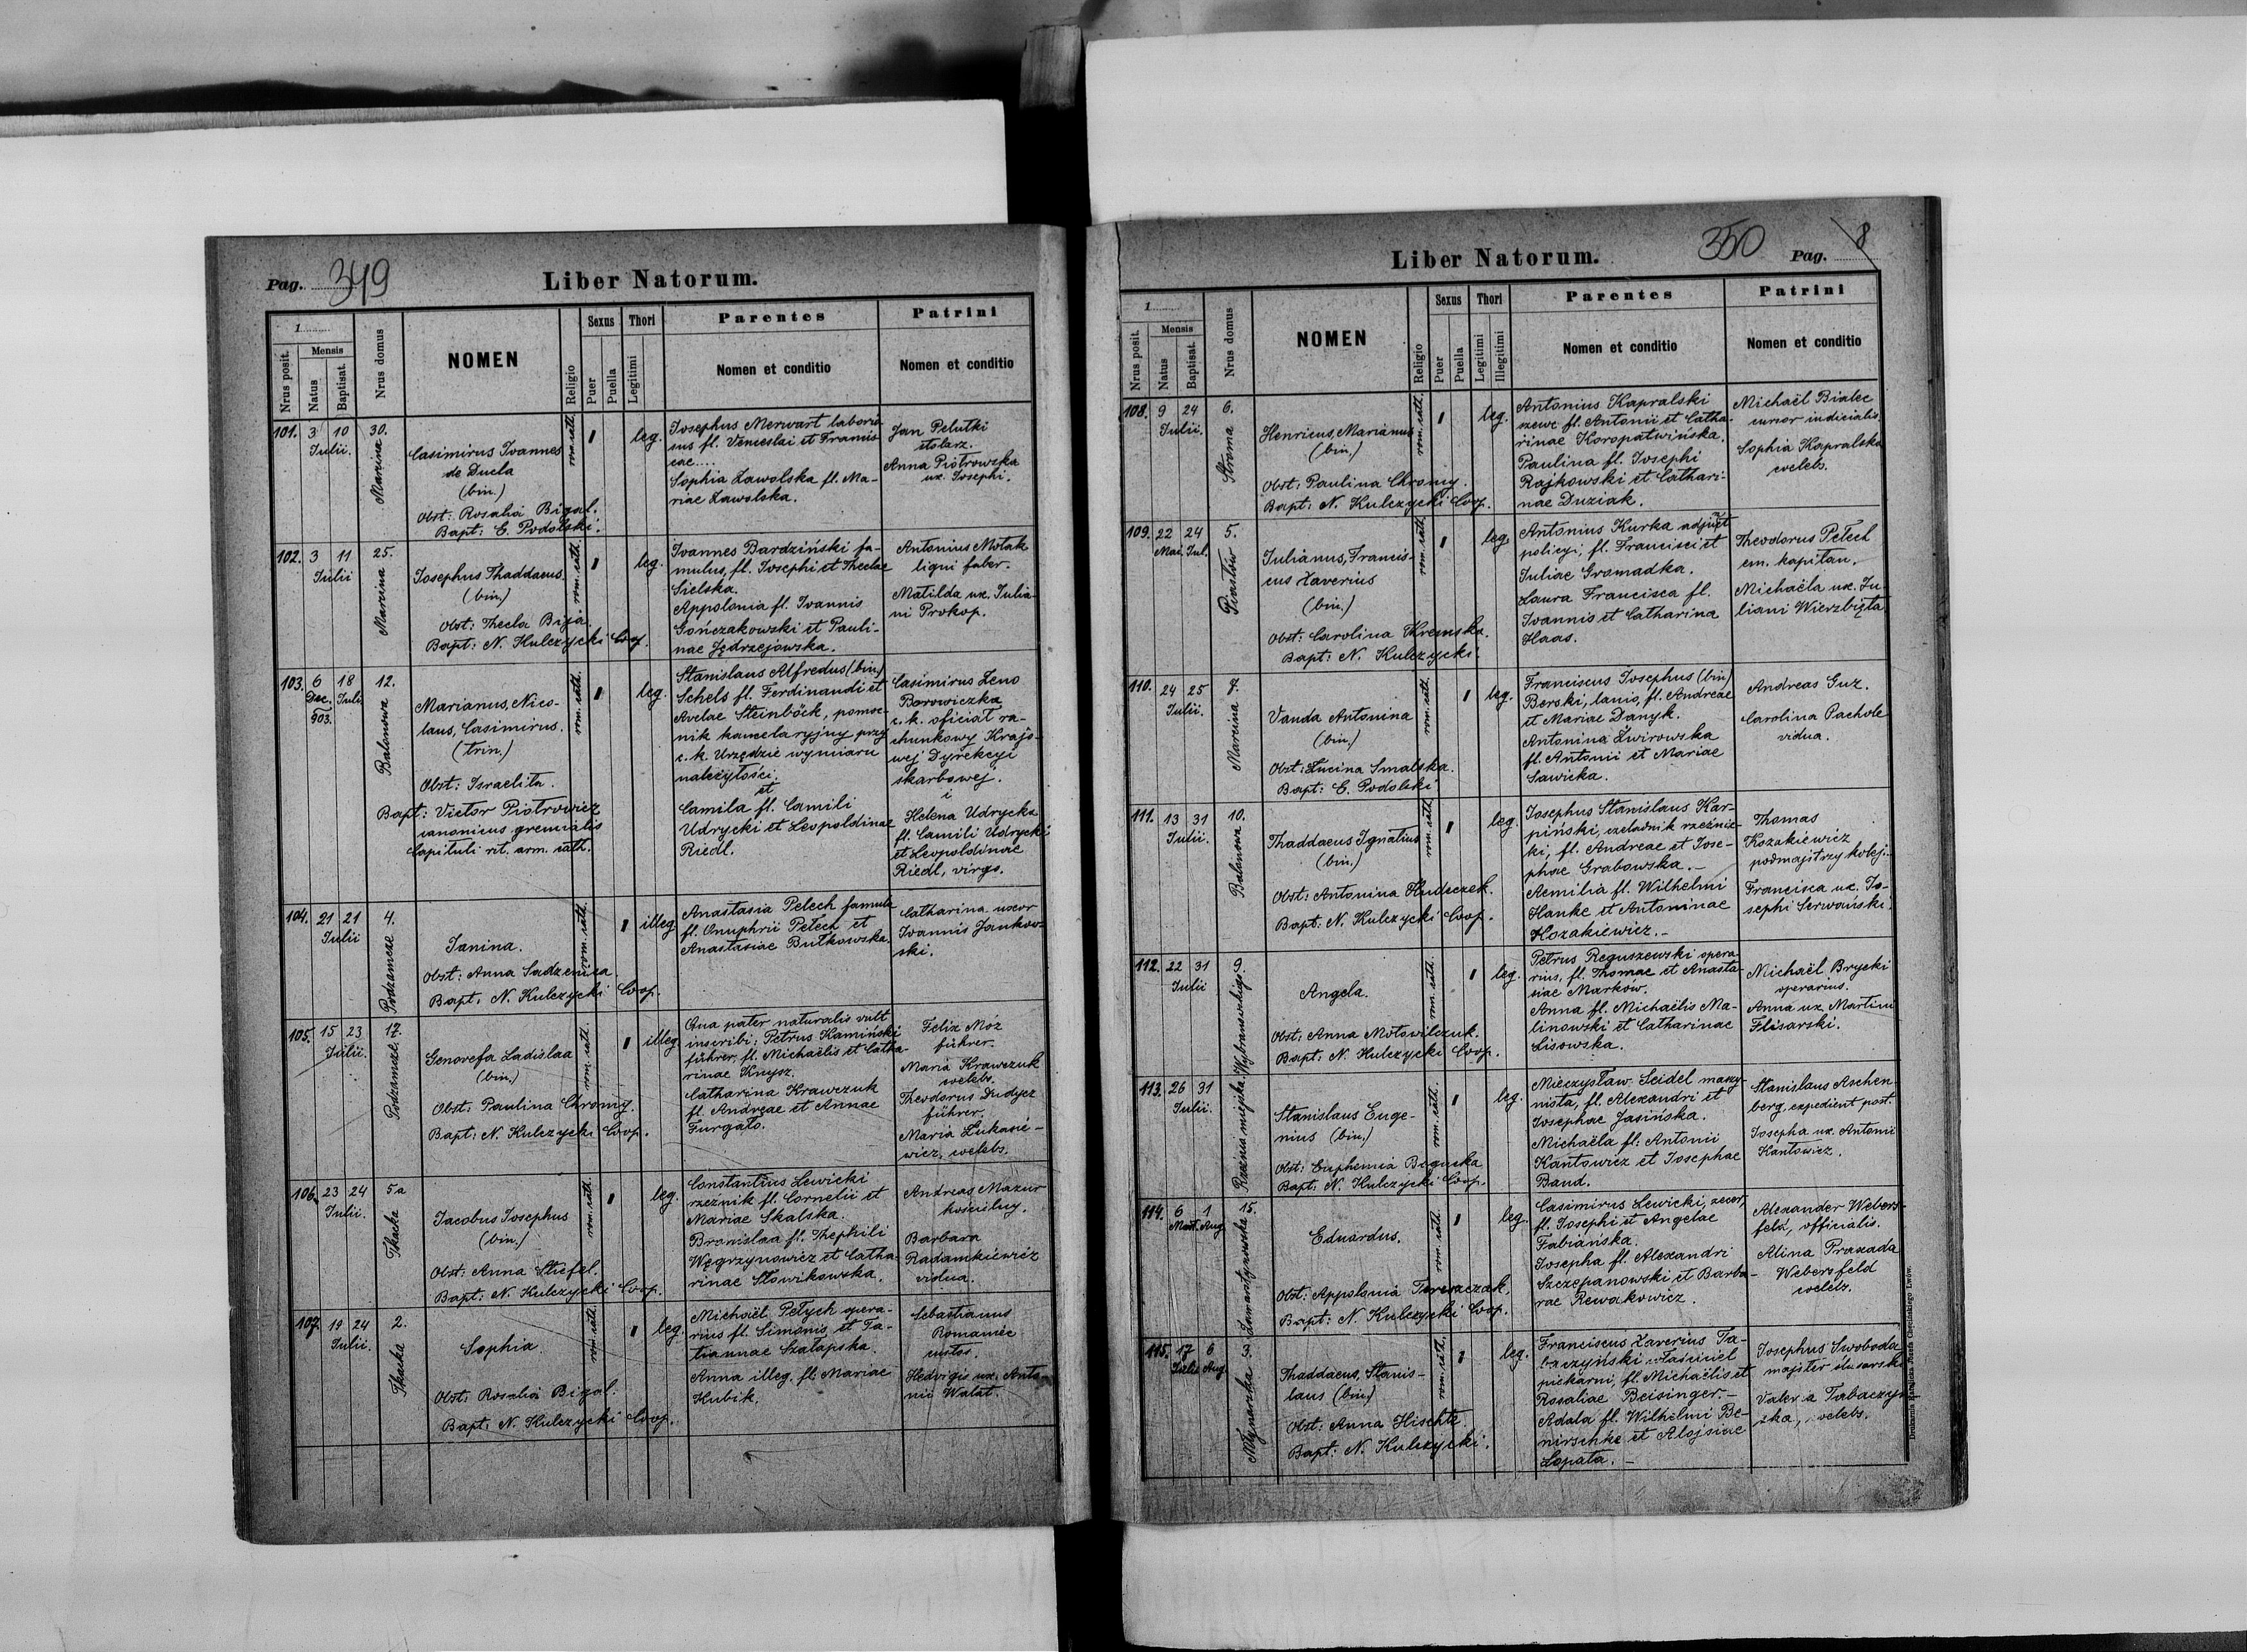 Pag. 349
Liber Natorum.
1
Nrus posit.
Mensis
Natus
Baptisat.
Nrus domus
NOMEN
Religio
Sexus
Puer
Puella
Thori
Legitimi
Parentes
Nomen et conditio
Patrini
Nomen et conditio
101. 3 10 Julii.
Marcina 30.
Casimirus Ioannes
de Ducla
(bin.)
Obst: Rosalia Bigal.
Bapt: E. Podolski.
rom. cath.
1
leg.
Josephus Merwart laborio-
sus fl. Venceslai et Francis-
cae....
Sophia Zawolska fl. Ma-
riae Zawolska.
Jan Pelutki
stolarz.
Anna Piotrowska
ux. Josephi.
102. 3 11 Julii
Marcina 25.
Josephus Thaddaeus.
(bin.)
Obst: Thecla Biga.
Bapt: N. Kulczycki Coop.
rom. cath.
1
leg.
Ioannes Bardziński fa-
mulus, fl. Josephi et Theclae
Sielska.
Appolonia fl. Ioannis
Gończakowski et Pauli-
nae Jędrzejowska.
Antonius Motak
ligni faber.
Matilda ux. Julia-
ni Prokop.
103. 6 Dec. 903. 18 Juli
Balonowa 12.
Marianus, Nico-
laus, Casimirus.
(trin.)
Obst: Israelita.
Bapt: Victor Piotrowicz
canonicus gremialis
Capituli rit. arm. cath.
rom. cath.
1
leg.
Stanislaus Alfredus (bin.)
Schels fl. Ferdinandi et
Avelae Steinböck, pomoc-
nik kancelaryjny przy
c. k. Urzędzie wymiaru
należytości.
et
Camila fl. Camili
Udrycki et Leopoldinae
Riedl.
Casimirus Zeno
Borowiczka
c. k. oficiał ra-
chunkowy Krajo-
wej Dyrekcyi
skarbowej.
i
Helena Udrycka
fl. Camili Udrycki
et Leopoldinae
Riedl, virgo.
104. 21 21 Julii
Podzamcze 4.
Janina.
Obst: Anna Sadzenica.
Bapt. N. Kulczycki Coop.
rom. cath.
1
illeg.
Anastasia Petech famula
fl. Onuphrii Petech et
Anastasiae Butkowska.
Catharina uxor
Ioannis Jankow-
ski.
105. 15 23 Julii.
Podzamcze. 17.
Genovefa Ladislaa
(bin.)
Obst: Paulina Chromy.
Bapt: N. Kulczycki Coop.
rom. cath.
1
illeg.
Qua pater naturalis vult
inscribi: Petrus Kamiński
führer, fl. Michaëlis et Catha-
rinae Knysz.
Catharina Krawczuk
fl. Andreae et Annae
Furgało.
Felix Móz
führer.
Maria Krawczuk
coelebs.
Theodorus Dudycz
führer.
Maria Łukasie-
wicz, coelebs.
106. 23 24 Julii.
Tkacka 5a
Jacobus Josephus
(bin.)
Obst: Anna Stiefel.
Bapt: N. Kulczycki Coop.
rom. cath.
1
leg.
Constantius Lewicki
rzeźnik fl. Cornelii et
Mariae Skalska.
Bronislaa fl. Thephili
Węgrzynowicz et Catha-
rinae Słowikowska.
Andreas Mazur
kościelny.
Barbara
Radamkiewicz
vidua.
107. 19 24 Julii.
Tkacka 2.
Sophia
Obst: Rosalia Bigal.
Bapt: N. Kulczycki Coop.
rom. cath.
1
leg.
Michaël Petych opera-
rius fl. Simonis et Ta-
tiannae Szałapska.
Anna illeg. fl. Mariae
Kubik.
Sebastianus
Romaniec
custos.
Hedvigis ux. Anto-
nii Walat.
Liber Natorum.
350
Pag. 8
1
Nrus posit.
Mensis
Natus
Baptisat.
Nrus domus
NOMEN
Religio
Sexus
Puer
Puella
Thori
Legitimi
Illegitimi
Parentes
Nomen et conditio
Patrini
Nomen et conditio
108. 9 24 Julii.
Stroma 6.
Henricus, Marianus
(bin.)
Obst: Paulina Chromy.
Bapt: N. Kulczycki Coop.
rom. cath.
1
leg.
Antonius Kapralski
szewc fl. Antonii et Catha-
rinae Koropatwińska.
Paulina fl. Josephi
Rajkowski et Cathari-
nae Duziak.
Michaël Bialec
cursor iudicialis.
Sophia Kapralska
coelebs.
109. 22 Mai. 24 Jul.
5.
Julianus, Francis-
cus Xaverius
(bin.)
Obst: Carolina Kremska.
Bapt: N. Kulczycki.
rom. cath.
1
leg.
Antonius Kurka adjunct
policyi, fl. Francisci et
Juliae Gromadka.
Laura Francisca fl.
Ioannis et Catharina
Haas.
Theodorus Petech
em. kapitan.
Michaëla ux. Ju-
liani Wierzbięta
110. 24 25 Julii.
Marcina
Vanda Antonina
(bin.)
Obst: Lucina Smalska.
Bapt: E. Podolski
rom. cath.
1
leg.
Franciscus Josephus (bin)
Berski, lanio, fl. Andreae
et Mariae Danyk.
Antonina Żwirowska
fl. Antonii et Mariae
Sawicka.
Andreas Guz.
Carolina Pachole
vidua.
111. 13 31 Julii.
Balonowa 10.
Thaddaeus Ignatius
(bin.)
Obst: Antonina Hudeczek.
Bapt: N. Kulczycki Coop.
rom. cath.
1
leg.
Josephus Stanislaus Kar-
piński, czeladnik rzeźnic-
ki, fl. Andreae et Jose-
phae Grabowska.-
Aemilia fl. Wilhelmi
Hanke et Antoninae
Kozakiewicz.-
Thomas
Kozakiewicz
podmajstrzy kolej.-
Francisca ux. Jo-
sephi Serwański.
112. 22 31 Julii
Wybranowskiego 9.
Angela.
Obst: Anna Motowilczuk.
Bapt: N. Kulczycki Coop.
rom. cath.
1
leg.
Petrus Reguszewski opera-
rius, fl. Thomae et Anasta-
siae Marków.
Anna fl. Michaëlis Ma-
linowski et Catharinae
Lisowska.
Michaël Brycki
operarius.
Anna ux. Martini
Flisarski.
113. 26 31 Julii.
Rzeźnia miejska.
Stanislaus Euge-
nius (bin.)
Obst: Euphemia Bogucka
Bapt: N. Kulczycki Coop.
rom. cath.
1
leg.
Mieczysław Seidel maszy-
nista, fl. Alexandri et
Josephae Jasińska.
Michaëla fl: Antonii
Kantowicz et Josephae
Baud.
Stanislaus Aschen-
berg, expedient post.
Josepha ux. Antonii
Kantowicz.
114. 6 Mart. 1 Aug
Zamarstynowska 15.
Eduardus.
Obst: Appolonia Tereszczak.
Bapt: N. Kulczycki Coop.
rom. cath.
1
leg.
Casimirus Lewicki, zecer,
fl. Josephi et Angelae
Fabiańska.
Josepha fl. Alexandri
Szczepanowski et Barba-
rae Rewakowicz.
Alexander Webers-
feld, officialis.
Alina Praxada
Webersfeld
coelebs.
115. 17 Julii 6 Aug.
Młynarska
Thaddaeus, Stanis-
laus (bin.)
Obst: Anna Hischtz.
Bapt: N. Kulczycki.
rom. cath.
1
leg.
Franciscus Xaverius Ta-
baczyński właściciel
piekarni, fl. Michaëlis et
Rosaliae Beisinger.-
Adala fl. Wilhelmi Be-
nirschke et Alojsiae
Łopata.-
Josephus Swoboda
majster ślusarski
Valeria Tabaczyń-
ska, coelebs.
Drukarnia Katolicka Józefa Chęcińskiego Lwów.